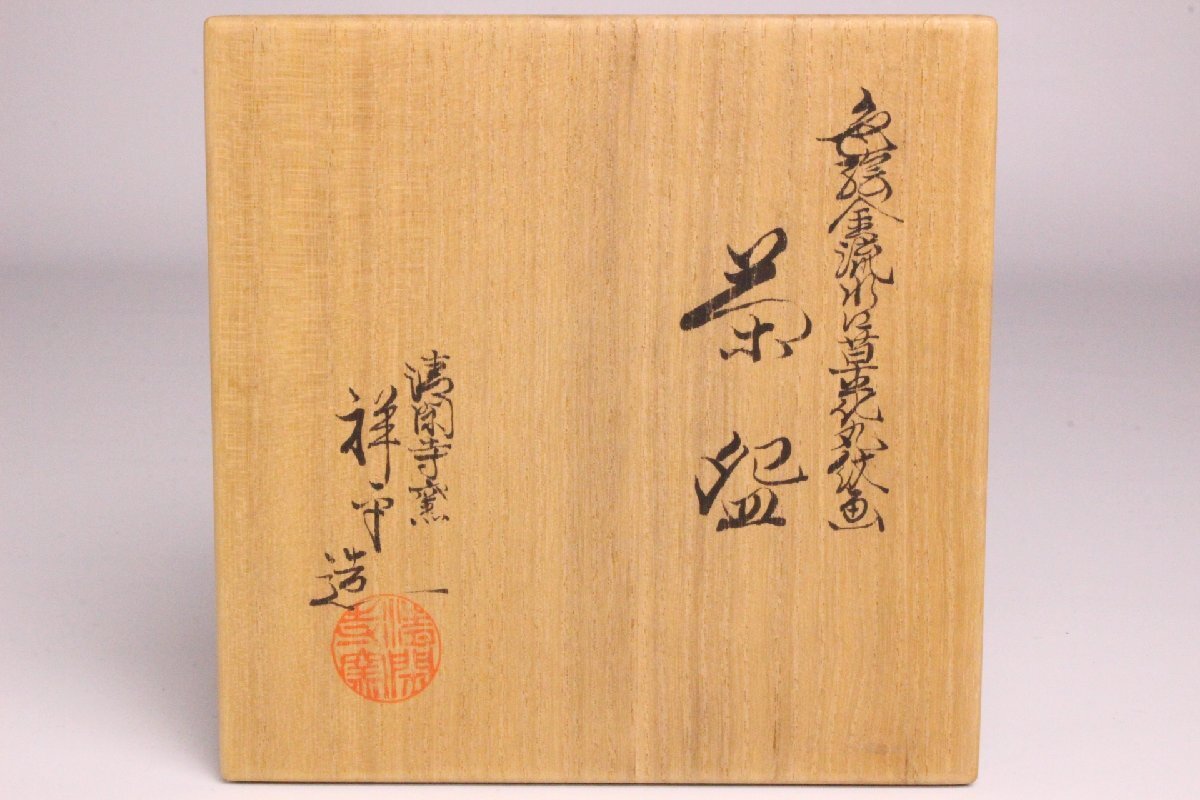 色絵金流水に草花丸伏画
茶盌
清閑寺窯
祥平造
清閑寺窯